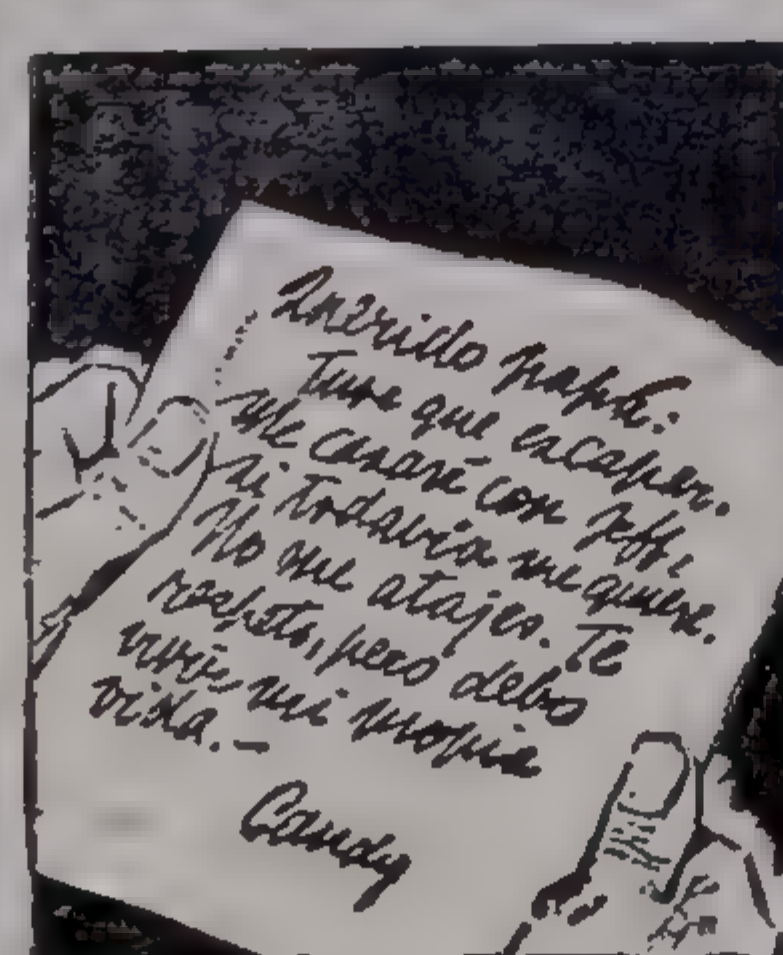 Querido papá:
Tuve que escapar.
Me casaré con Jeff,
si todavía me quiere.
No me atajes. Te
respeto, pero debo
vivir mi propia
vida.-
Candy